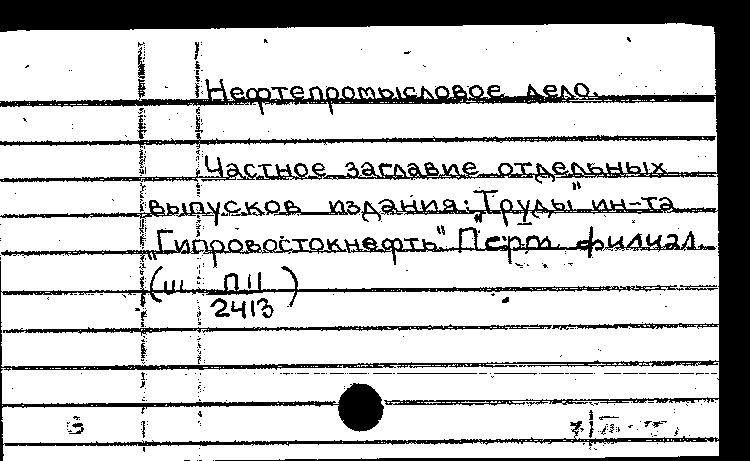 Нефтепромысловое дело.
Частное заглавие отдельных
выпусков издания: "Труды" ин-та
"Гипровостокнефть" Перм. филиал.
(Ш П11
2413)